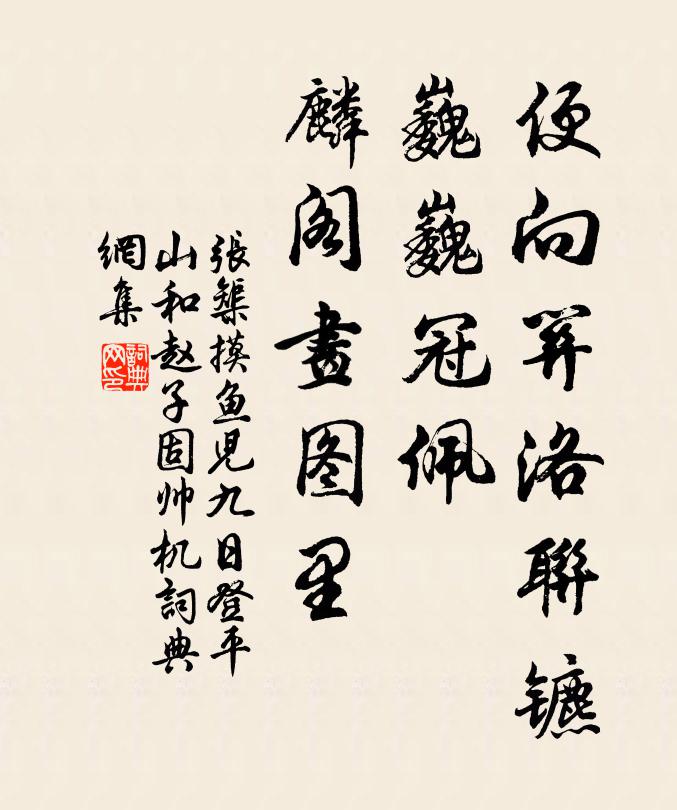 便向開洛聯鑣
巍巍冠佩
麟阁畫图里
張榘摸鱼児九日登平
山和赵子固帅机詞典
網集
詞典网印